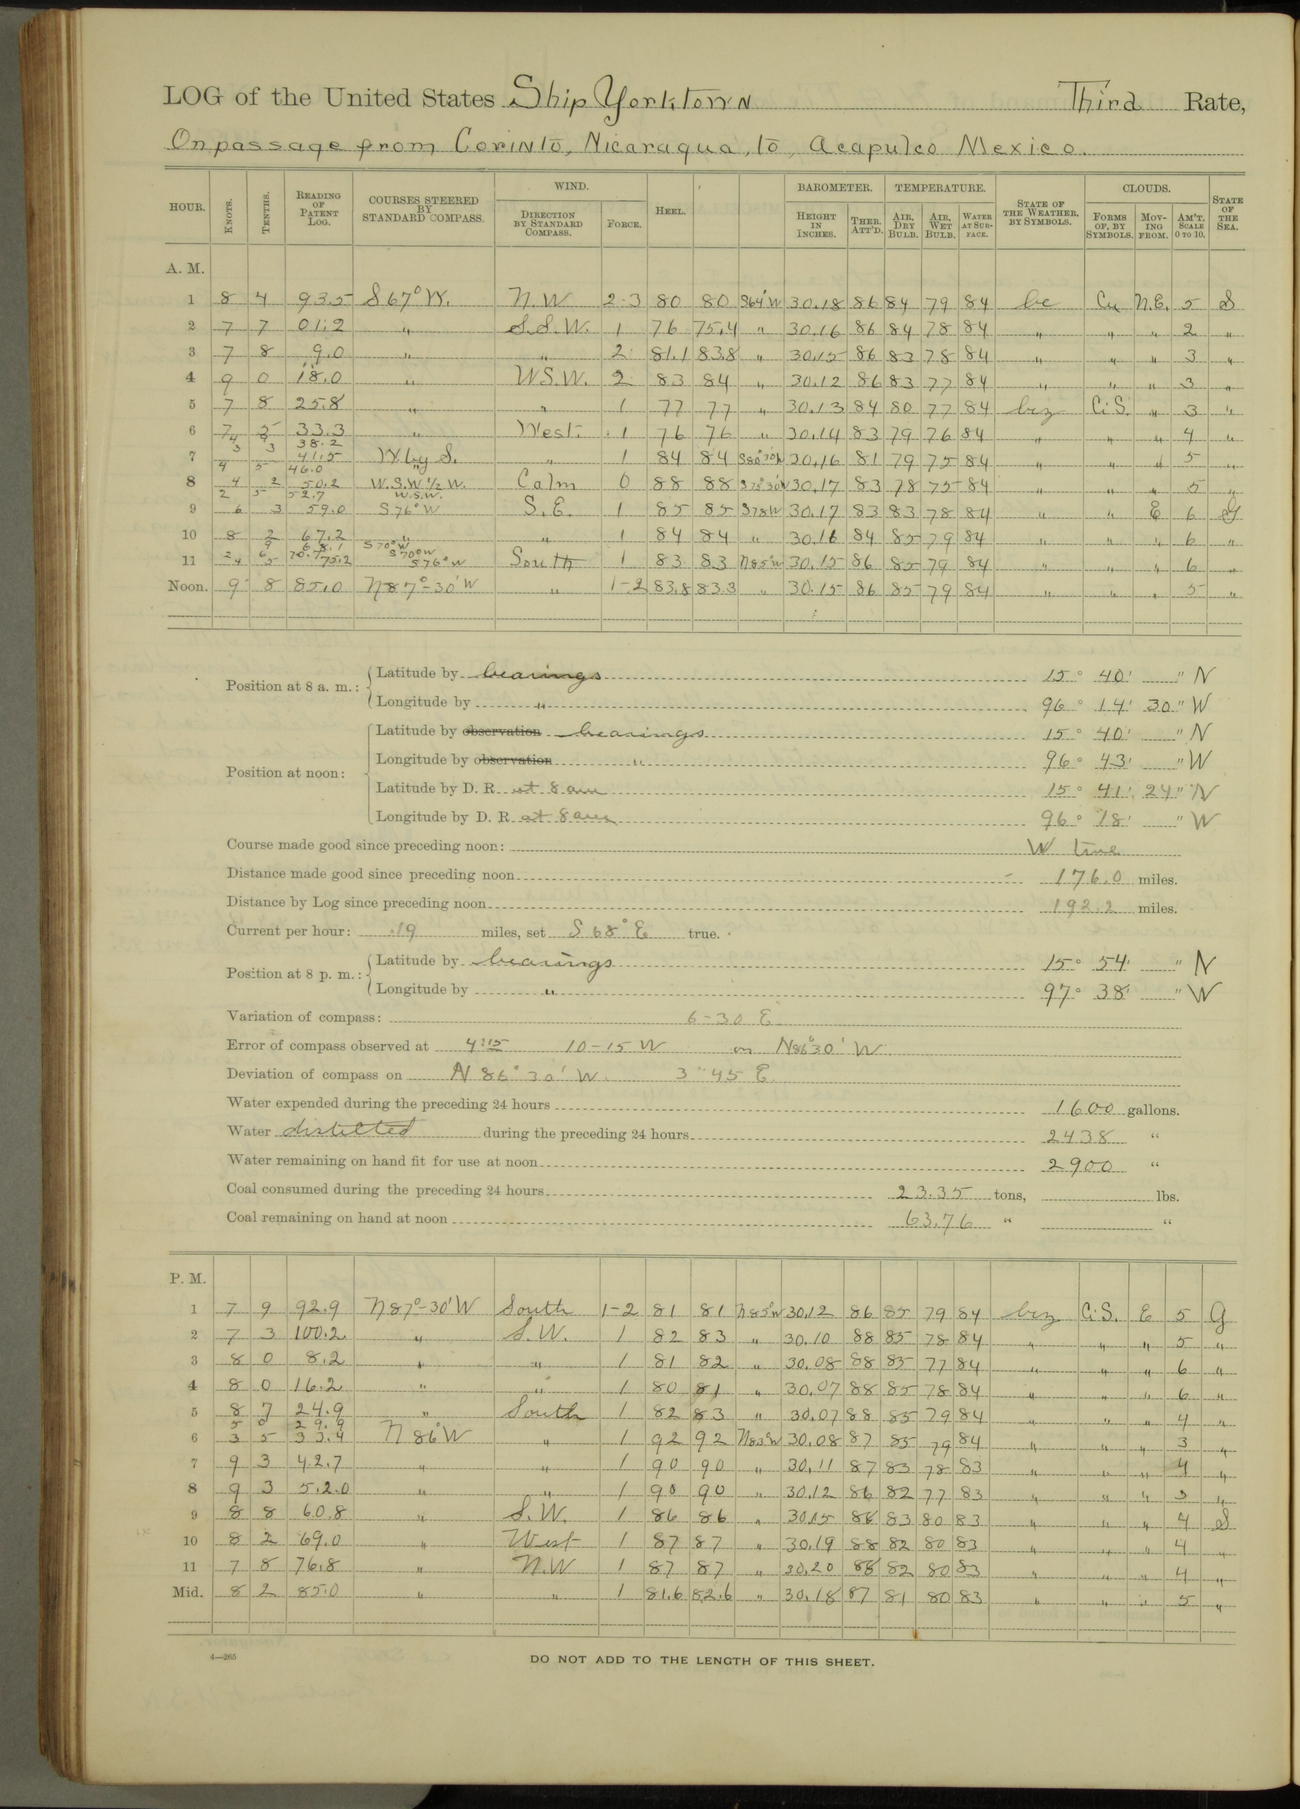 LOG of the United States Ship Yorktown Third Rate,
On passage from Corinto, Nicaragua, to, Acapulco Mexico.
HOUR. KNOTS. TENTHS. READING OF PATENT LOG. COURSES STEERED BY STANDARD COMPASS. WIND. DIRECTION BY STANDARD COMPASS. FORCE. HEEL. BAROMETER. HEIGHT IN INCHES. THER. ATT'D. TEMPERATURE. AIR, DRY BULB. AIR, WET BULB. WATER AT SURFACE. STATE OF THE WEATHER, BY SYMBOLS. CLOUDS. FORMS OF, BY SYMBOLS. MOVING FROM. AM'T. SCALE 0 TO 10. STATE OF THE SEA.
A. M.
1 8 4 93.5 S 67° W. N.W 2-3 80 80 S64°W 30.18 86 84 79 84 bc Cu N.E. 5 S
2 7 7 01.2 " S.S.W. 1 76 75.4 " 30.16 86 84 78 84 " " " 2 "
3 7 8 9.0 " " 2 81.1 83.8 " 30.15 86 83 78 84 " " " 3 "
4 9 0 18.0 " W.S.W. 2 83 84 " 30.12 86 83 77 84 " " " 3 "
5 7 8 25.8 " " 1 77 77 " 30.13 84 80 77 84 bcz Ci.S. " 3 "
6 7 5 33.3 " West. 1 76 76 " 30.14 83 79 76 84 " " " 4 "
4 8 38.2
7 3 3 41.5 W by S. " 1 84 84 S80°30'W 30.16 81 79 75 84 " " " 5 "
4 5 46.0 "
8 4 2 50.2 W.S.W. ½ W. Calm 0 88 88 30.17 83 78 75 84 " " " 5 "
2 5 52.7 W.S.W.
9 6 3 59.0 S 76° W S.E. 1 85 85 S78W 30.17 83 83 78 84 " " E 6
10 8 2 67.2 " " 1 84 84 " 30.16 84 85 79 84 " " " 6 "
9 68.1 S 70° W
2 6 70.7 S 70° W
11 4 5 75.2 S 76° W South 1 83 83 N85°W 30.15 86 85 79 84 " " " 6 "
Noon. 9 8 85.0 N 87°-30' W " 1-2 83.8 83.3 " 30.15 86 85 79 84 " " " 5 "
Position at 8 a. m.: Latitude by bearings 15° 40' " N
Longitude by " 96° 14' 30" W
Position at noon: Latitude by observation bearings 15° 40' " N
Longitude by observation " 96° 43' " W
Latitude by D. R. at 8 am 15° 41' 24" N
Longitude by D. R. at 8 am 96° 18' " W
Course made good since preceding noon: W true
Distance made good since preceding noon 176.0 miles.
Distance by Log since preceding noon 192.2 miles.
Current per hour: .19 miles, set S 68° E true.
Position at 8 p. m.: Latitude by bearings 15° 54' " N
Longitude by " 97° 38' " W
Variation of compass: 6-30 E
Error of compass observed at 4:15 10-15 W on N 86° 30' W
Deviation of compass on N 86° 30' W. 3" 45 E.
Water expended during the preceding 24 hours 1600 gallons.
Water distilled during the preceding 24 hours 2438 "
Water remaining on hand fit for use at noon 2900 "
Coal consumed during the preceding 24 hours 23.35 tons, lbs.
Coal remaining on hand at noon 63.76 " "
P. M.
1 7 9 92.9 N 87°-30' W South 1-2 81 81 N85°W 30.12 86 85 79 84 bcz Ci.S. E 5 G
2 7 3 100.2 " S.W. 1 82 83 " 30.10 88 85 78 84 " " " 5 "
3 8 0 8.2 " " 1 81 82 " 30.08 88 85 77 84 " " " 6 "
4 8 0 16.2 " " 1 80 81 " 30.07 88 85 78 84 " " " 6 "
5 8 7 24.9 " South 1 82 83 " 30.07 88 85 79 84 " " " 4 "
5 0 29.9
6 3 5 33.4 N 86° W " 1 92 92 N83°W 30.08 87 85 79 84 " " " 3 "
7 9 3 42.7 " " 1 90 90 " 30.11 87 83 78 83 " " " 4 "
8 9 3 52.0 " " 1 90 90 " 30.12 86 82 77 83 " " " 3 "
9 8 8 60.8 " S.W. 1 86 86 " 30.15 86 83 80 83 " " " 4 S
10 8 2 69.0 " West 1 87 87 " 30.19 88 82 80 83 " " " 4 "
11 7 8 76.8 " N.W 1 87 87 " 30.20 88 82 80 83 " " " 4 "
Mid. 8 2 85.0 " " 1 81.6 82.6 " 30.18 87 81 80 83 " " " 5 "
4—265
DO NOT ADD TO THE LENGTH OF THIS SHEET.